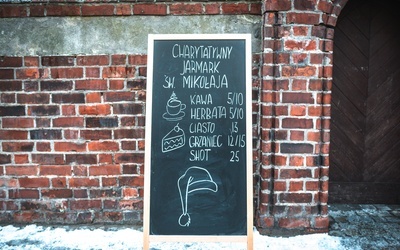 CHARYTATYWNY
JARMARK
ŚW. MIKOŁAJA
KAWA 5/10
HERBATA 5/10
CIASTO 15
GRZANIEC 12/15
SHOT 25